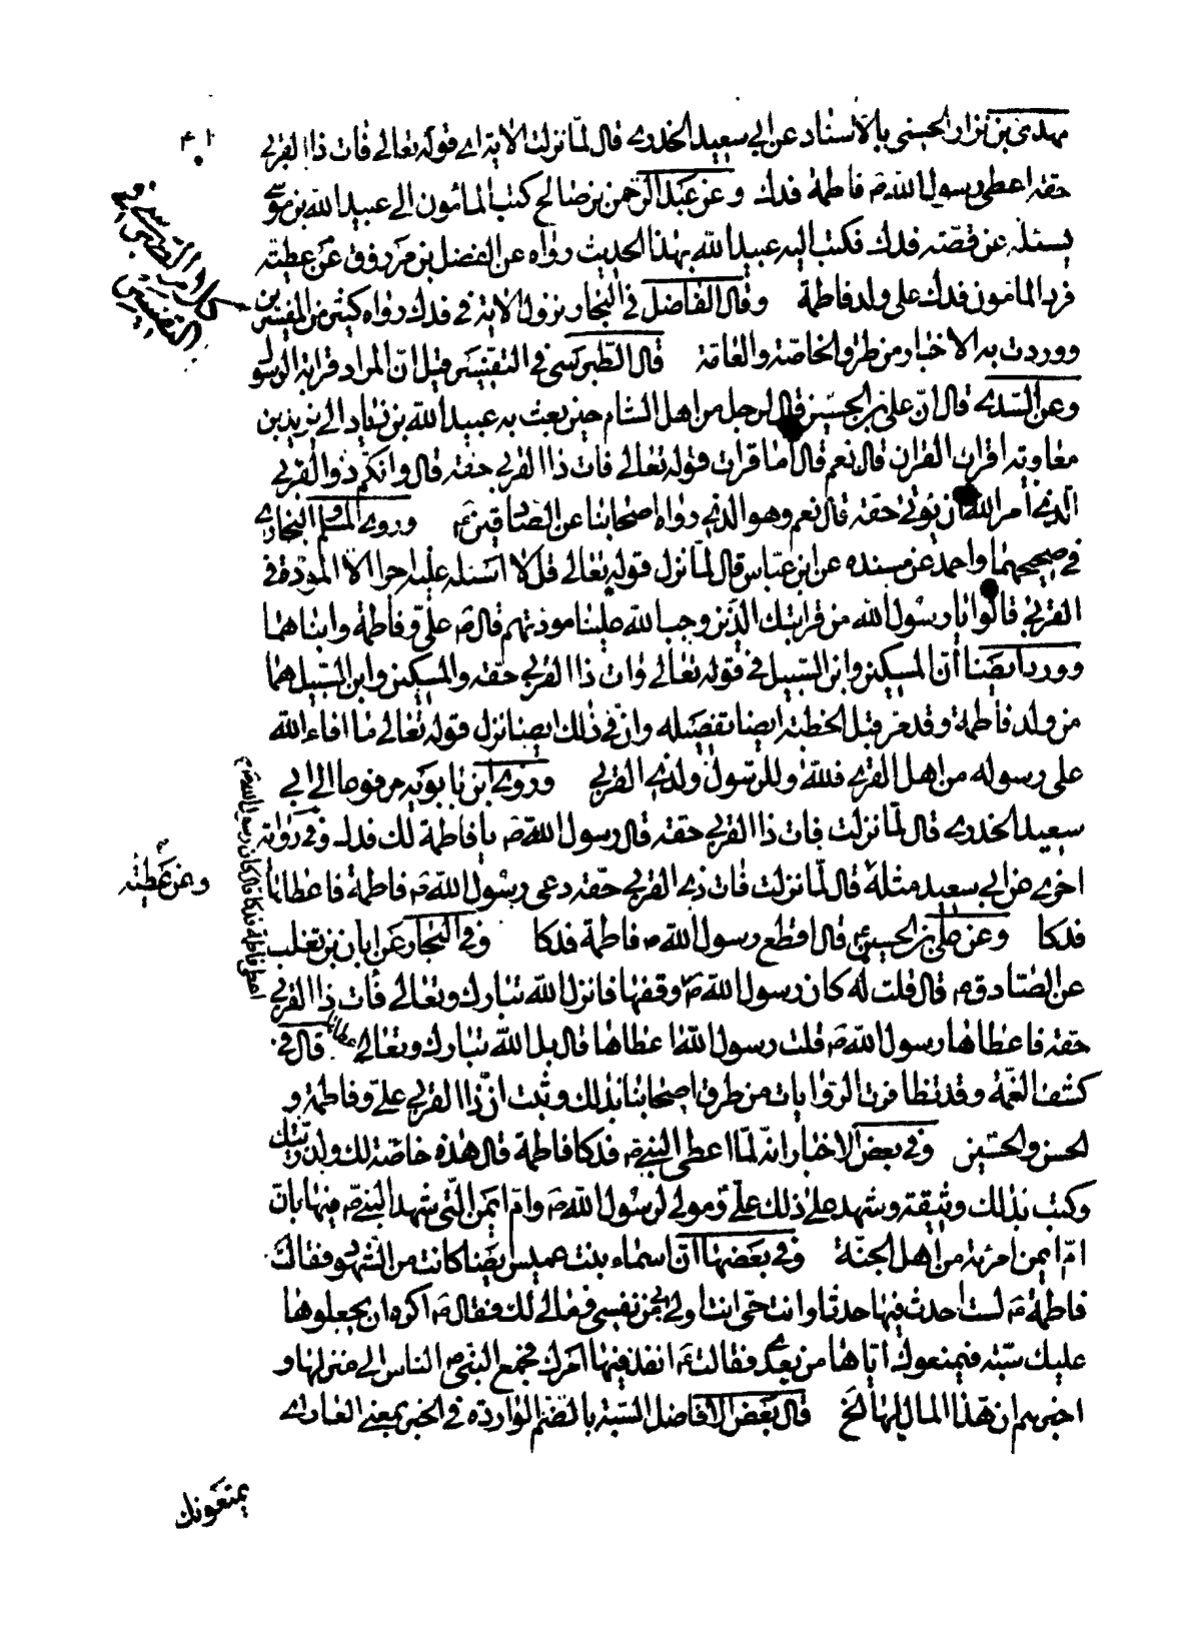 مهدى بن نزار الحسنى بالاسناد عن ابي سعيد الخدرى قال لمّا نزلت الاية اى قوله تعالى فات ذا القربى
حقه اعطى رسول الله ص فاطمة فدك وعن عبد الرحمن بن صالح كتب المأمون الى عبيد الله بن موسى
يسئله عن قصّة فدك فكتب اليه عبيد الله بهذا الحديث رواه عن الفضل بن مرزوق عن عطية
فرد المأمون فدك على ولد فاطمة وقال الفاضل فى البحار ونزول الاية فى فدك رواه كثير من المفسرين
ووردت به الاخبار من طرق الخاصّة والعامّة قال الطبرسى فى التفسير قيل ان المراد قرابة الرسول
وعن السدى قال انّ على بن الحسين قال لرجل من اهل الشام حين بعث به عبيد الله بن زياد الى يزيد بن
معاوية اقرات القران قال نعم قال اما قرات قوله تعالى فات ذا القربى حقه قال وانكم ذو القربى
الّذى امر الله ان يؤتى حقه قال نعم وهو الذى رواه اصحابنا عن الصادقين ع وروى المسلم والبخارى
فى صحيحهما واحمد عن مسنده عن ابن عبّاس قال لمّا نزل قوله تعالى قل لا اسئلكم عليه اجرا الا المودّة فى
القربى قالوا يا رسول الله من قرابتك الّذين وجب الله علينا مودتهم قال ص علىّ وفاطمة وابناهما
وورد ايضا انّ المسكين وابن السبيل فى قوله تعالى وات ذا القربى حقه والمسكين وابن السبيل هما
من ولد فاطمة وقد مرّ قبل الخطبة ايضا تفصيله وانّ فى ذلك ايضا نزل قوله تعالى ما افاء الله
على رسوله من اهل القرى فلله وللرسول ولذى القربى وروى ابن بابويه مرفوعا الى ابى
سعيد الخدرى قال لمّا نزلت فات ذا القربى حقه قال رسول الله ص يا فاطمة لك فدك وفى رواية
اخرى عن ابى سعيد مثله قال لمّا نزلت فات ذى القربى حقه دعى رسول الله ص فاطمة فاعطاها
فدكا وعن على بن الحسين ع قال اقطع رسول الله ص فاطمة فدكا وفى البحار عن ابان بن تغلب
عن الصّادق ع قال قلت له كان رسول الله ص وقفها فانزل الله تبارك وتعالى فات ذا القربى
حقه فاعطاها رسول الله ص قلت رسول الله اعطاها قال بل الله تبارك وتعالى اعطاها قال فى
كشف الغمّة وقد تظافرت الروايات من طرق اصحابنا بذلك وثبت انّ ذا القربى علىّ وفاطمة و
الحسن والحسين وفى بعض الاخبار انّه لمّا اعطى النبى ص فدكا فاطمة قال هذه خاصّة لك ولذريّتك
وكتب بذلك وثيقة وشهد على ذلك علىّ ومولى لرسول الله ص وامّ ايمن الّتى شهد النبى ص فيها بانّ
امّ ايمن امرئة من اهل الجنّة وفى بعضها انّ اسماء بنت عميس ايضا كانت من الشهود فقالت
فاطمة ع لست احدث فيها حدثا وانت حىّ انت اولى بى من نفسى ومالى لك فقال ص اكره ان يجعلوها
عليك سبّة فيمنعوك ايّاها من بعدى فقالت ع انفذ فيها امرك فجمع النبى ص الناس الى منزلها و
اخبرهم ان هذا المال لها الخ قال بعض الافاضل السّبة بالضّم الواردة فى الخبر بمعنى العار اى
يمنعونك
كلام الطبرسى فى
التفسير
وعن عطية
قال كان رسول الله ص
اعطى فاطمة فدكا